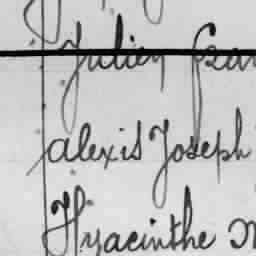 Julien
alexis Joseph
Hyacinthe